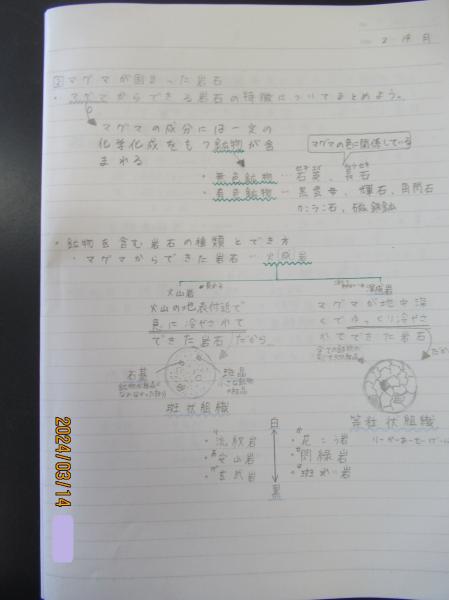 2 月
② マグマが固まった岩石
・マグマからできる岩石の特徴についてまとめよう。
マグマの成分には一定の
化学化成をもつ鉱物が含
まれる
マグマの色に関係している
・無色鉱物…石英、長石
・有色鉱物…黒雲母、輝石、角閃石
カンラン石、磁鉄鉱
・鉱物を含む岩石の種類とでき方
・マグマからできた岩石…火成岩
火山岩
火山の地表付近で
急に冷やされて
できた岩石だから
深成岩
マグマが地中深
くでゆっくり冷やさ
れてできた岩石
だから
石基
斑晶
斑状組織
等粒状組織
白
・流紋岩
・安山岩
・玄武岩
・花こう岩
・閃緑岩
・斑れい岩
黒
2024/03/14